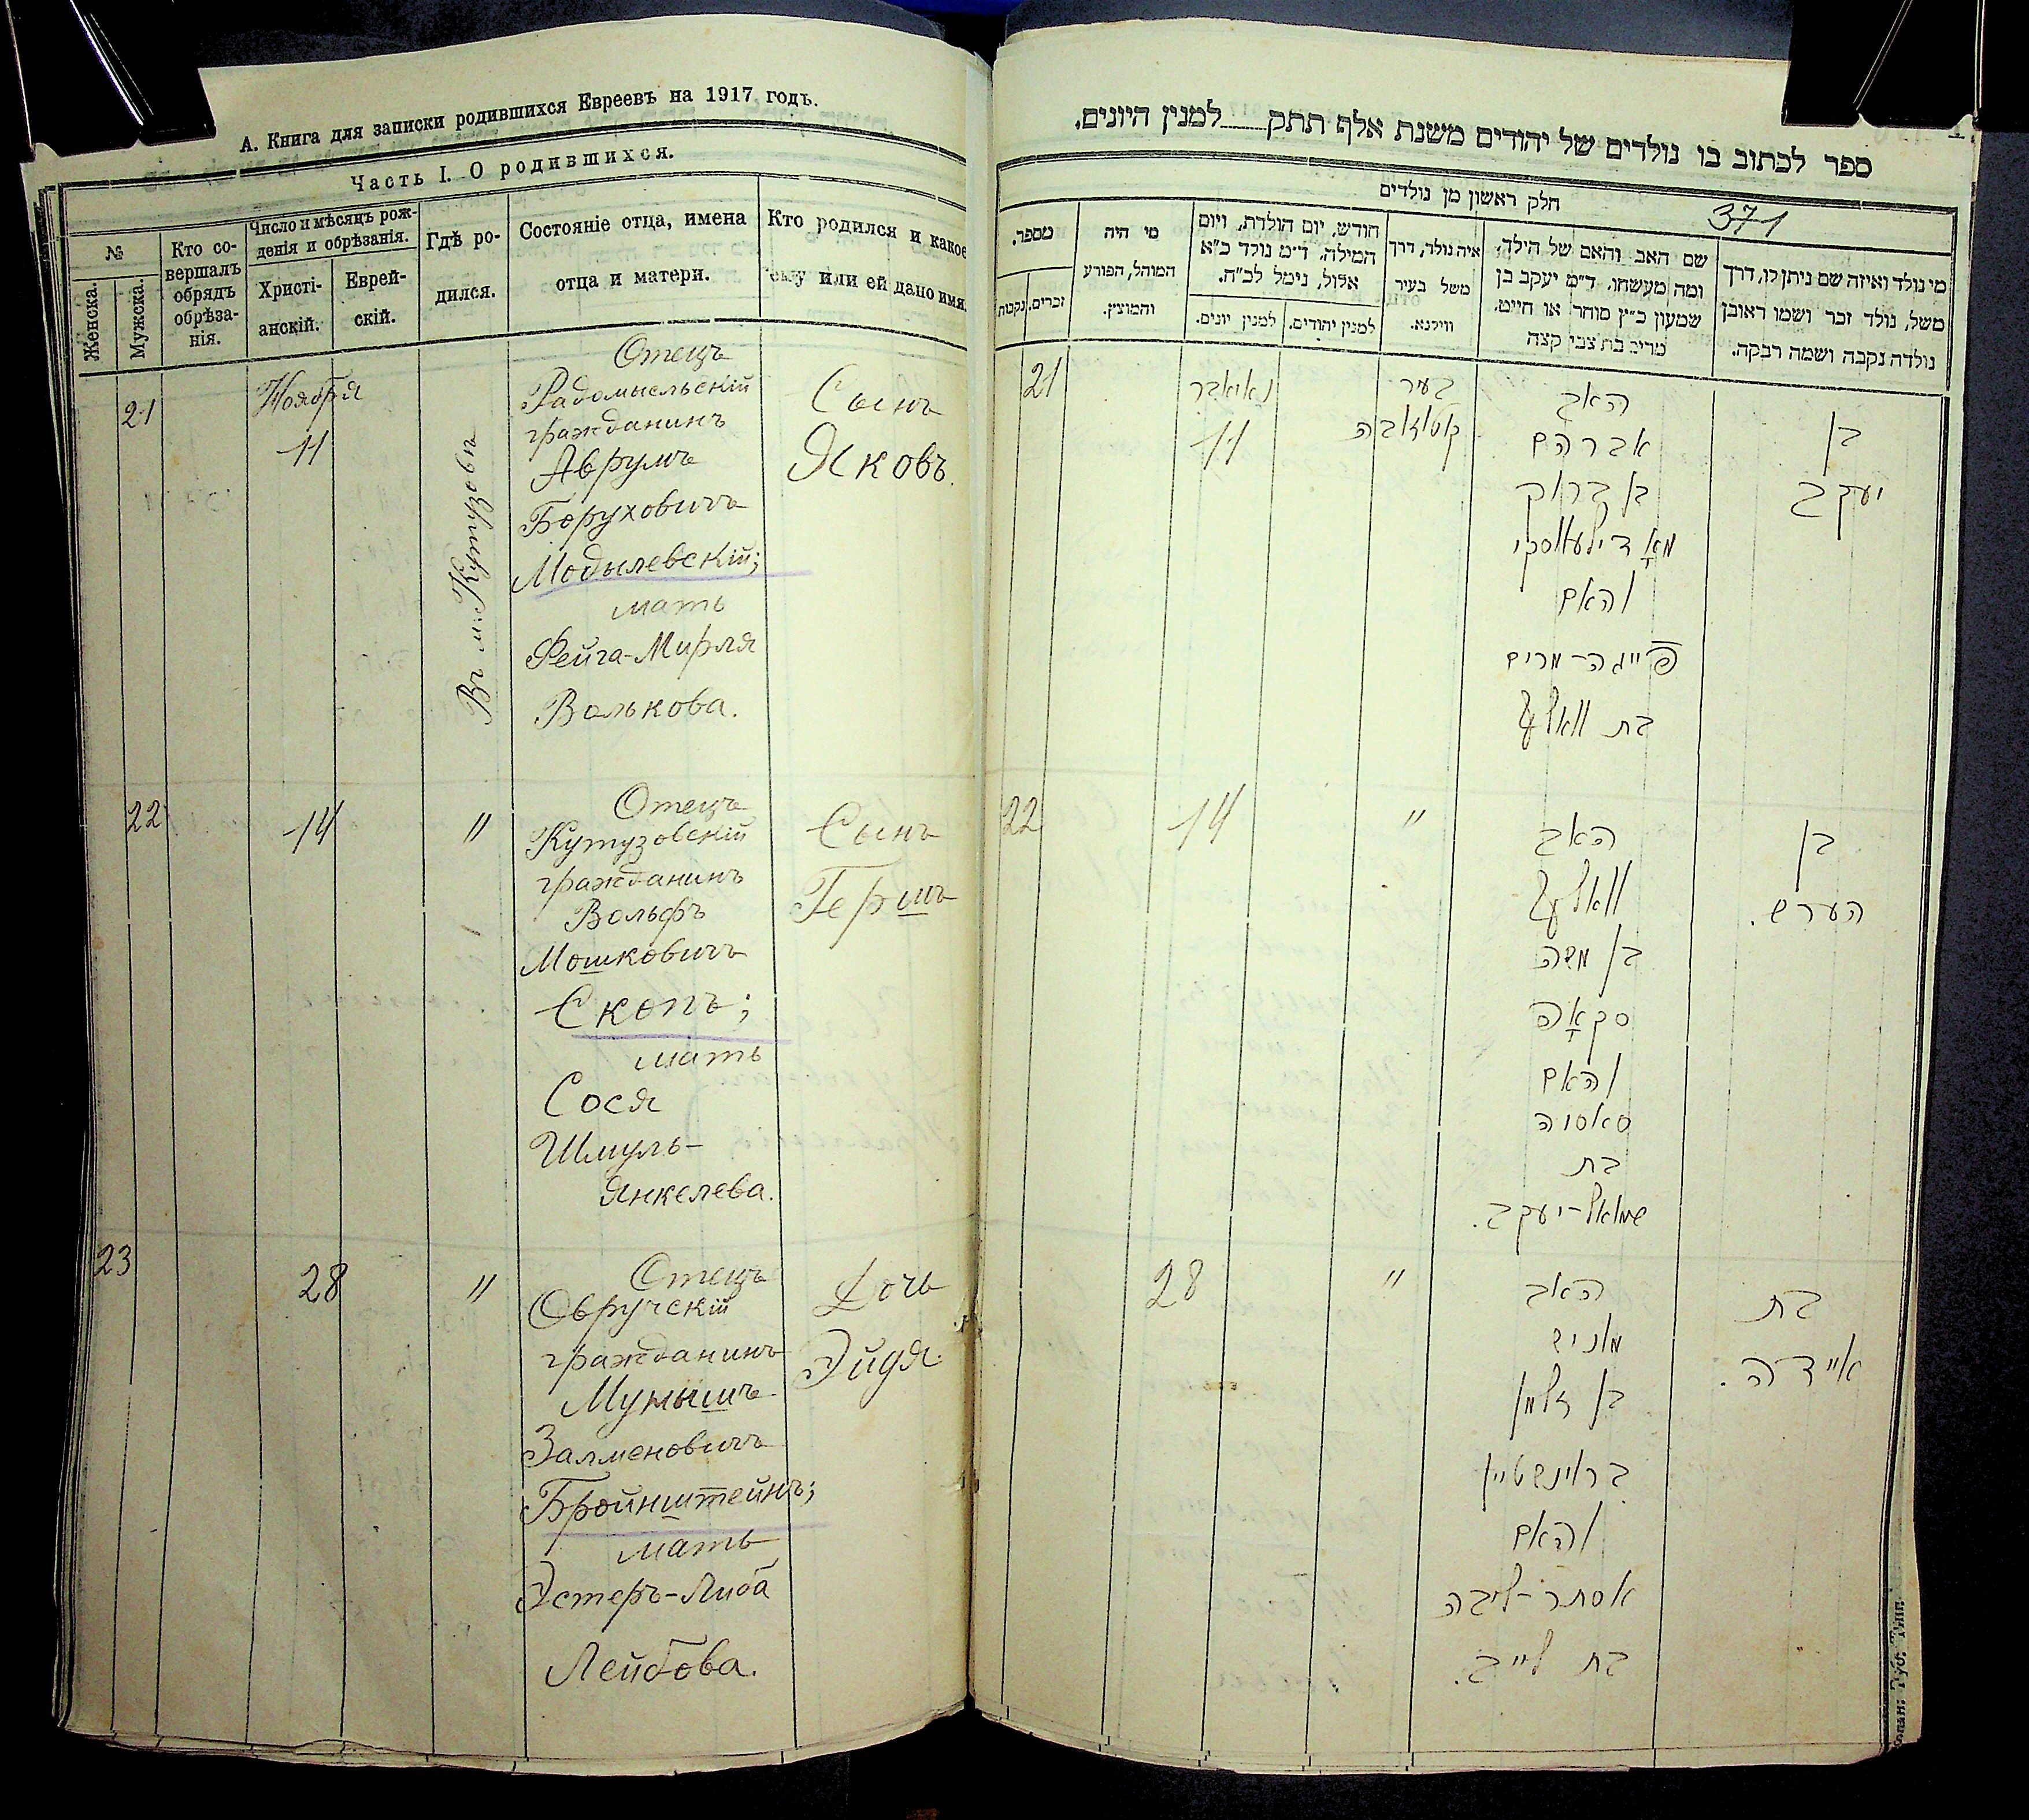 А. Книга для записки родившихся Евреевъ на 1917 годъ.
Часть I. О родившихся.
№
Женска.
Мужска.
Кто со-
вершалъ
обрядъ
обрѣза-
нія.
Число и мѣсяцъ рож-
денія и обрѣзанія.
Христі-
анскій.
Еврей-
скій.
Гдѣ ро-
дился.
Состояніе отца, имена
отца и матери.
Кто родился и какое
ему или ей дано имя.
21
Ноября
11
Въ м. Кутузовѣ
Отецъ
Радомысльскій
гражданинъ
Аврумъ
Боруховичъ
Модылевскій;
мать
Фейга-Мирля
Волькова.
Сынъ
Яковъ.
22
14
"
Отецъ
Кутузовскій
гражданинъ
Вольфъ
Мошковичъ
Скопъ;
мать
Сося
Шмуль-
Янкелева.
Сынъ
Гершъ
23
28
"
Отецъ
Овручскій
гражданинъ
Мунышъ
Залменовичъ
Бройнштейнъ;
мать
Эстеръ-Либа
Лейбова.
Дочь
Эйдя.
ספר לכתוב בו נולדים של יהודים משנת אלף תתק למנין היונים.
חלק ראשון מן נולדים
371
מספר.
זכרים.
נקבות
מי היה
המוהל, הפורע
והמוצץ.
חודש, יום הולדת, ויום
המילה. ד״מ נולד כ״א
אלול, נימל לכ״ח.
למנין יונים.
למנין יהודים.
איה נולד, דרך
משל בעיר
ווילנא.
שם האב והאם של הילד,
ומה מעשהו. ד״מ יעקב בן
שמעון כ״ץ סוחר או חייט.
מרים בת צבי קצה
מי נולד ואיזה שם ניתן לו, דרך
משל, נולד זכר ושמו ראובן
נולדה נקבה ושמה רבקה.
21
נאיאבר
11
בעיר
האב
אברהם
בן ברוך
מאָדילעווסקי
והאם
פייגה-מרים
בת וואלף
בן
יעקב
22
14
"
האב
וואלף
בן משה
סקאָפ
והאם
סאסיה
בת
שמואל-יעקב.
בן
הערש.
28
"
האב
מוניש
בן זלמן
בראינשטיין
והאם
אסתר-ליבה
בת לייב.
בת
איידה.